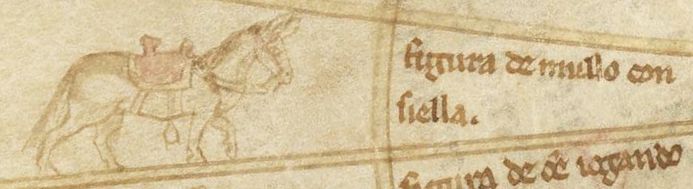 figura de mullo con
siella.
figura de de iogando